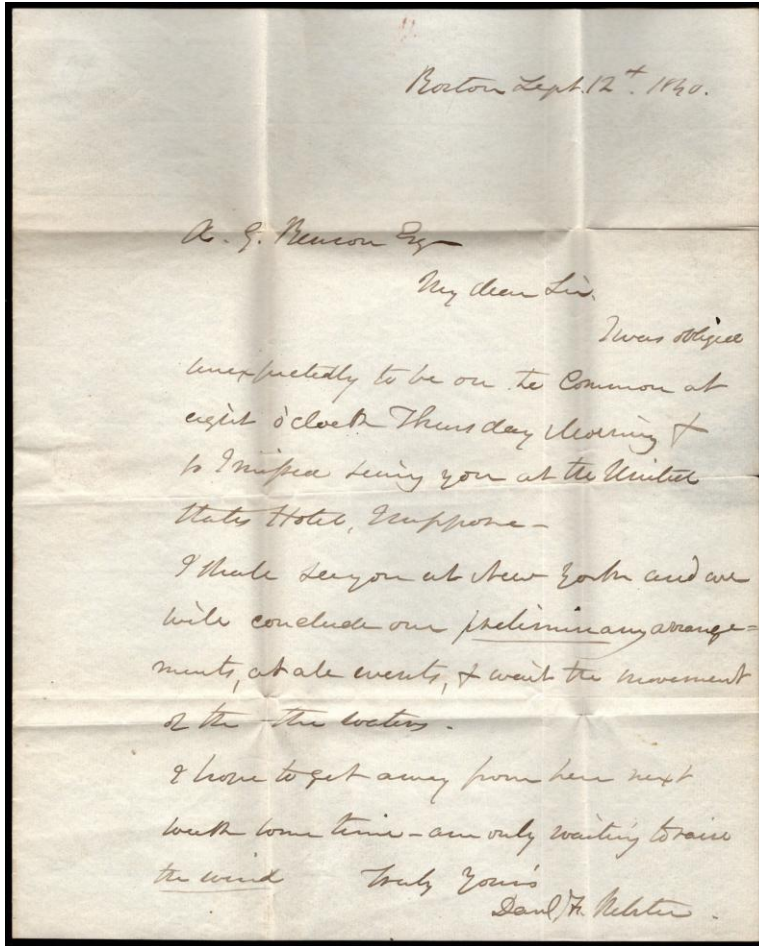 Boston Sept. 12th. 1840.
A. G. Benson Esq
My dear Sir.
I was obliged
unexpectedly to be on the Common at
eight o'clock Thursday Morning &
so I missed seeing you at the United
States Hotel, I suppose -
I shall see you at New York and we
will conclude our preliminary arrange=
ments, at all events, & wait the movement
of the the waters.
I hope to get away from here next
week some time - am only waiting to raise
the wind Truly Yours
Danl, F. Webster.